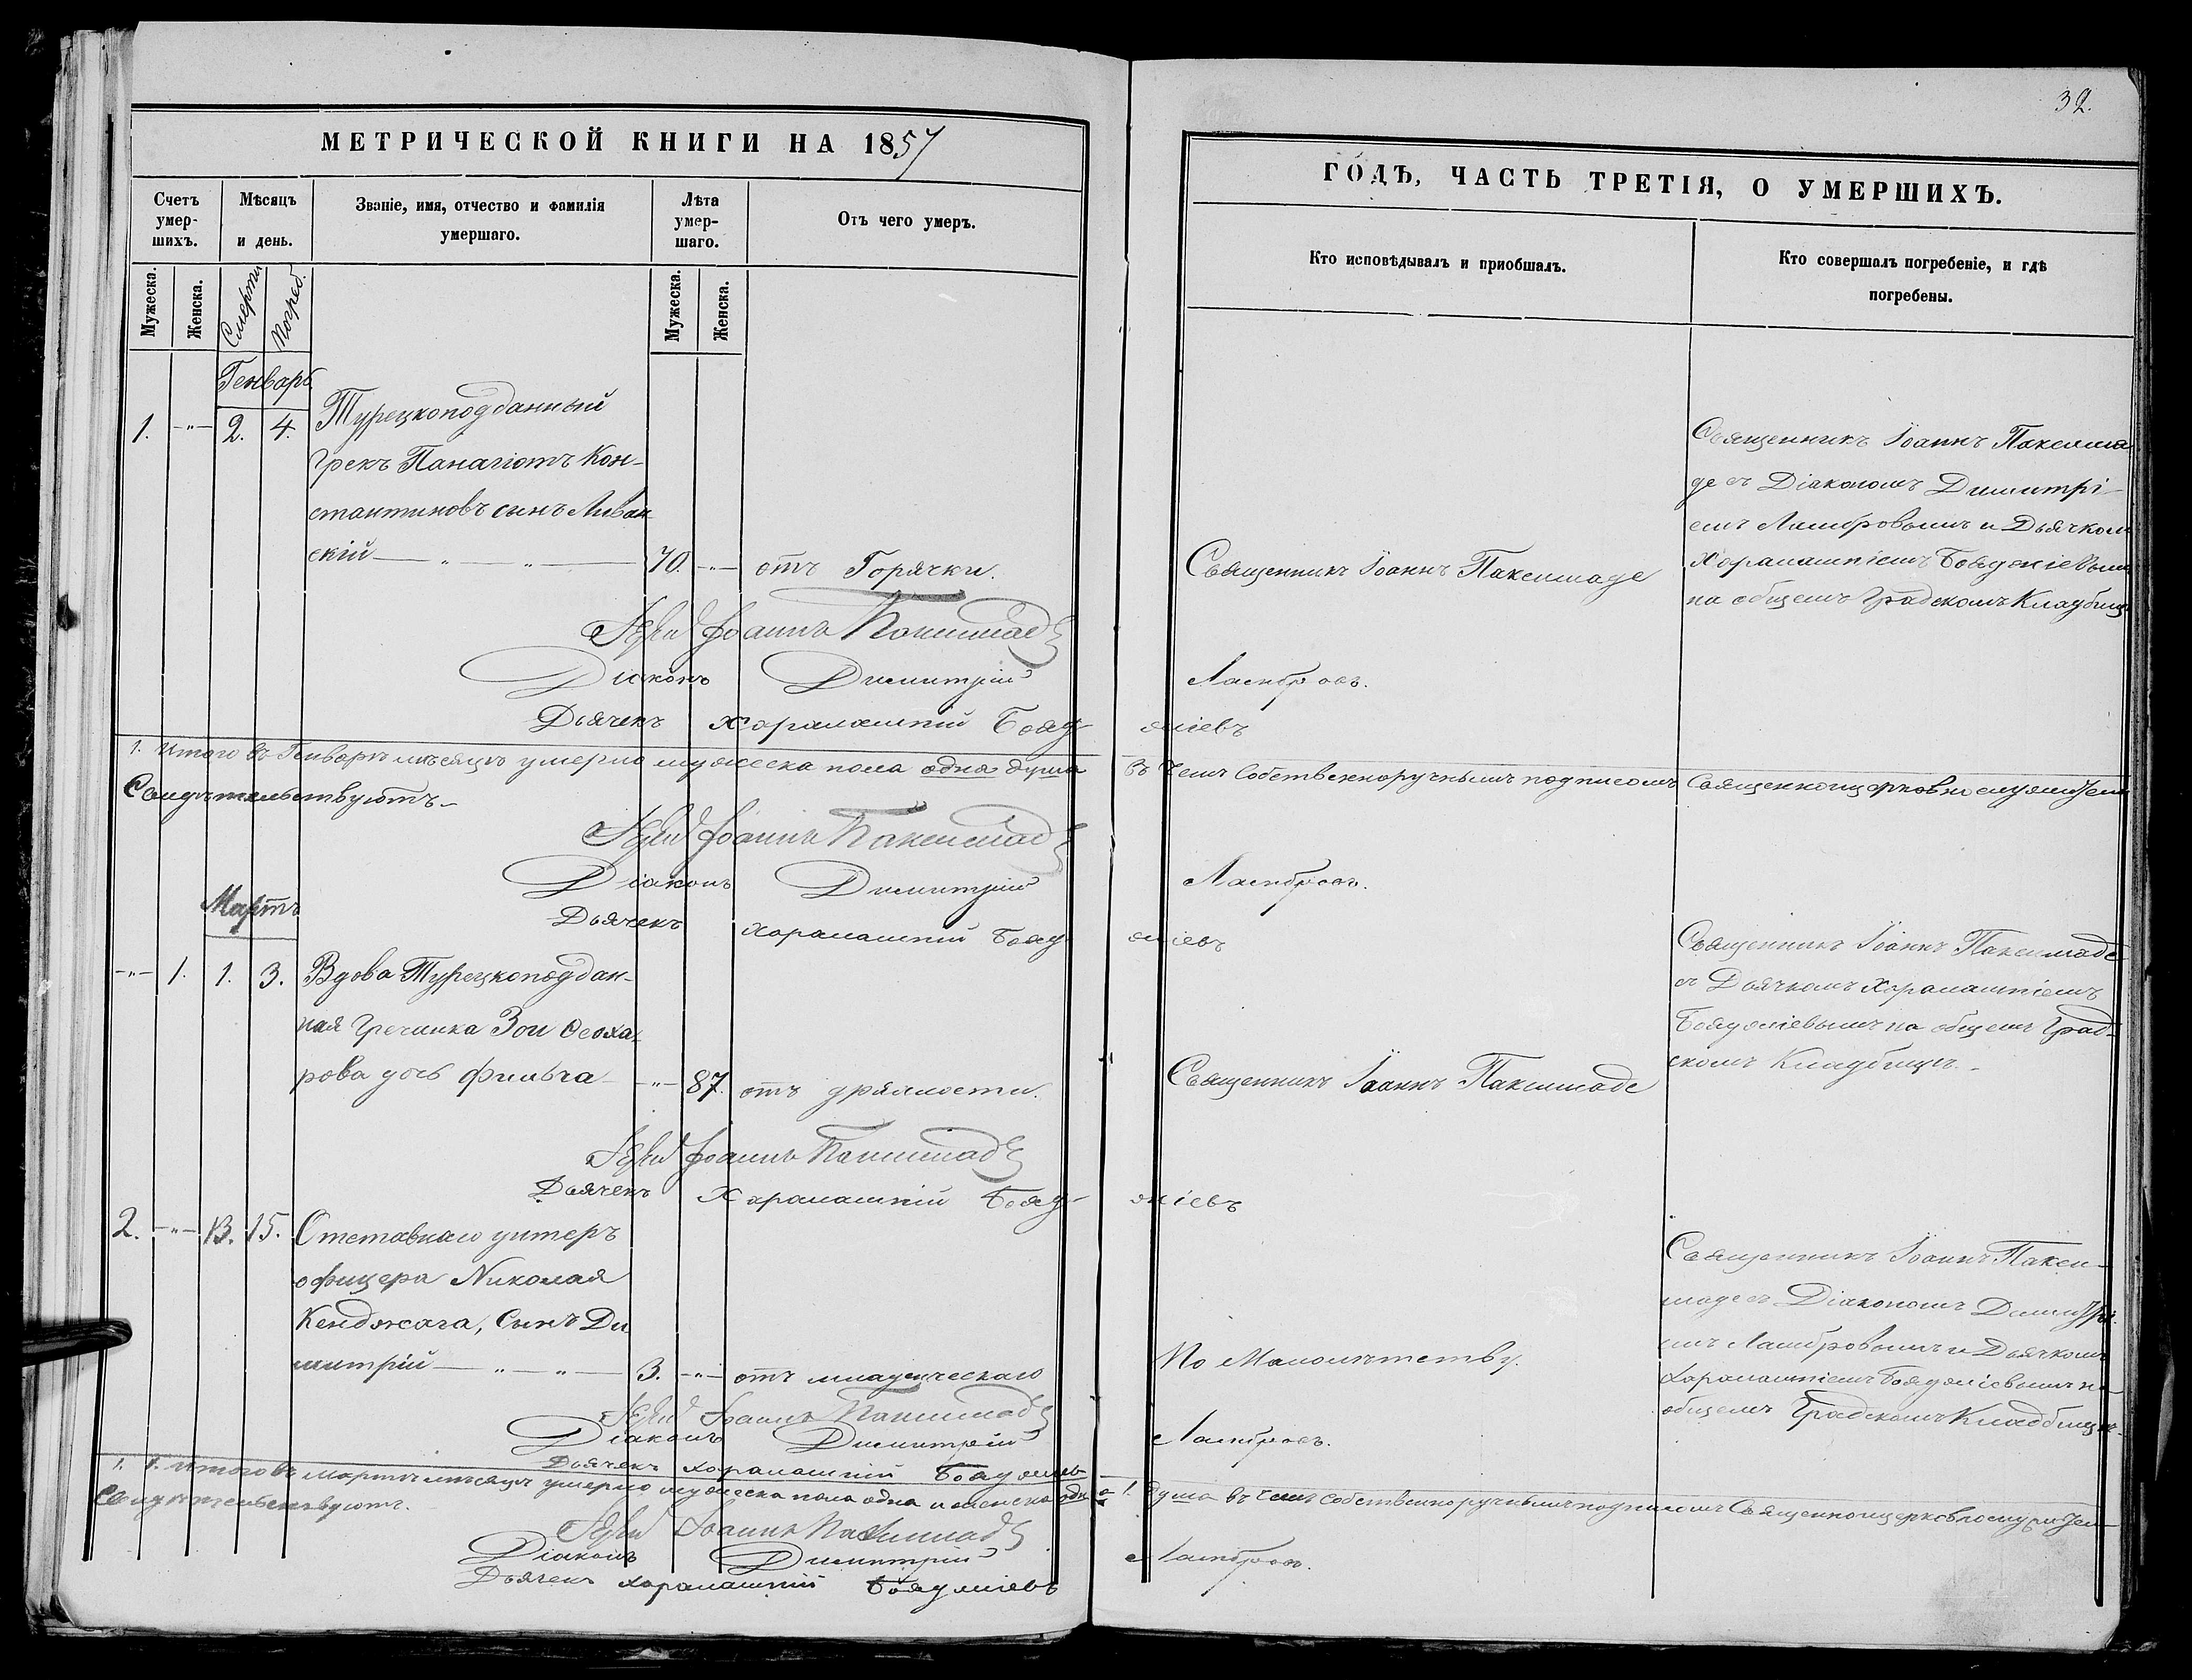 32.
МЕТРИЧЕСКОЙ КНИГИ НА 1857
ГОДЪ, ЧАСТЬ ТРЕТІЯ, О УМЕРШИХЪ.
Счетъ умер-шихъ.
Мѣсяцъ и день.
Званіе, имя, отчество и фамилія
умершаго.
Лѣта умер-шаго.
Отъ чего умеръ.
Кто исповѣдывалъ и пріобщалъ.
Кто совершалъ погребеніе, и гдѣ
погребены.
Мужеска.
Женска.
Смерти
Погреб.
Мужеска.
Женска.
Генварь
1. -"- 2. 4. Турецкоподданный
Грекъ Панагіотъ Кон-
стантиновъ сынъ Ливан
скій - " - " - 70. -"- отъ Горячки.
Священникъ Іоаннъ Паксимаде
Священникъ Іоаннъ Паксима
де съ Діакономъ Димитрі-
емъ Ламбровымъ и Дьячкомъ
Харалампіемъ Бояджіевымъ
на общемъ Градскомъ Кладбищ
Іерей Іоаннъ Паксимаде
Діаконъ Димитрій Ламбровъ.
Дьячекъ Харалампій Бояд-
жіевъ
1. Итого въ Генварѣ мѣсяцѣ умерло мужеска пола одна душа въ чемъ собственноручнымъ подписомъ Священноцерковнослужители
Свидѣтельствуютъ
Іерей Іоаннъ Паксимаде
Діаконъ Димитрій Ламбровъ.
Дьячекъ Харалампій Бояд
жіевъ
Мартъ
-"- 1. 1. 3. Вдова Турецкоподдан-
ная Гречанка Зои Ѳеоха-
рова дочь -"- 87. отъ дряхлости.
Священникъ Іоаннъ Паксимаде
Священникъ Іоаннъ Паксимаде
съ Дьячкомъ Харалампіемъ
Бояджіевымъ на общемъ Град-
скомъ Кладбищѣ.
Іерей Іоаннъ Паксимаде
Дьячекъ Харалампій Бояд-
жіевъ
2. -"- 13. 15. Отставнаго унтеръ
офицера Николая
Кенджага, Сынъ Ди
митрій - " - " - 3. -"- отъ младенческаго
По Малолѣтству.
Священникъ Іоаннъ Пакси-
маде съ Діакономъ Димитрі-
емъ Ламбровымъ и Дьячкомъ
Харалампіемъ Бояджіевымъ на
общемъ Градскомъ Кладбищѣ.
Іерей Іоаннъ Паксимаде
Діаконъ Димитрій Ламбровъ.
Дьячекъ Харалампій Бояджіевъ
1. 1. Итого въ Мартѣ мѣсяцѣ умерло мужеска пола одна и женска одна 1. душа въ чемъ собственноручнымъ подписомъ Священноцерковнослужители
Свидѣтельствуютъ.
Іерей Іоаннъ Паксимаде
Діаконъ Димитрій Ламбровъ.
Дьячекъ Харалампій Бояджіевъ